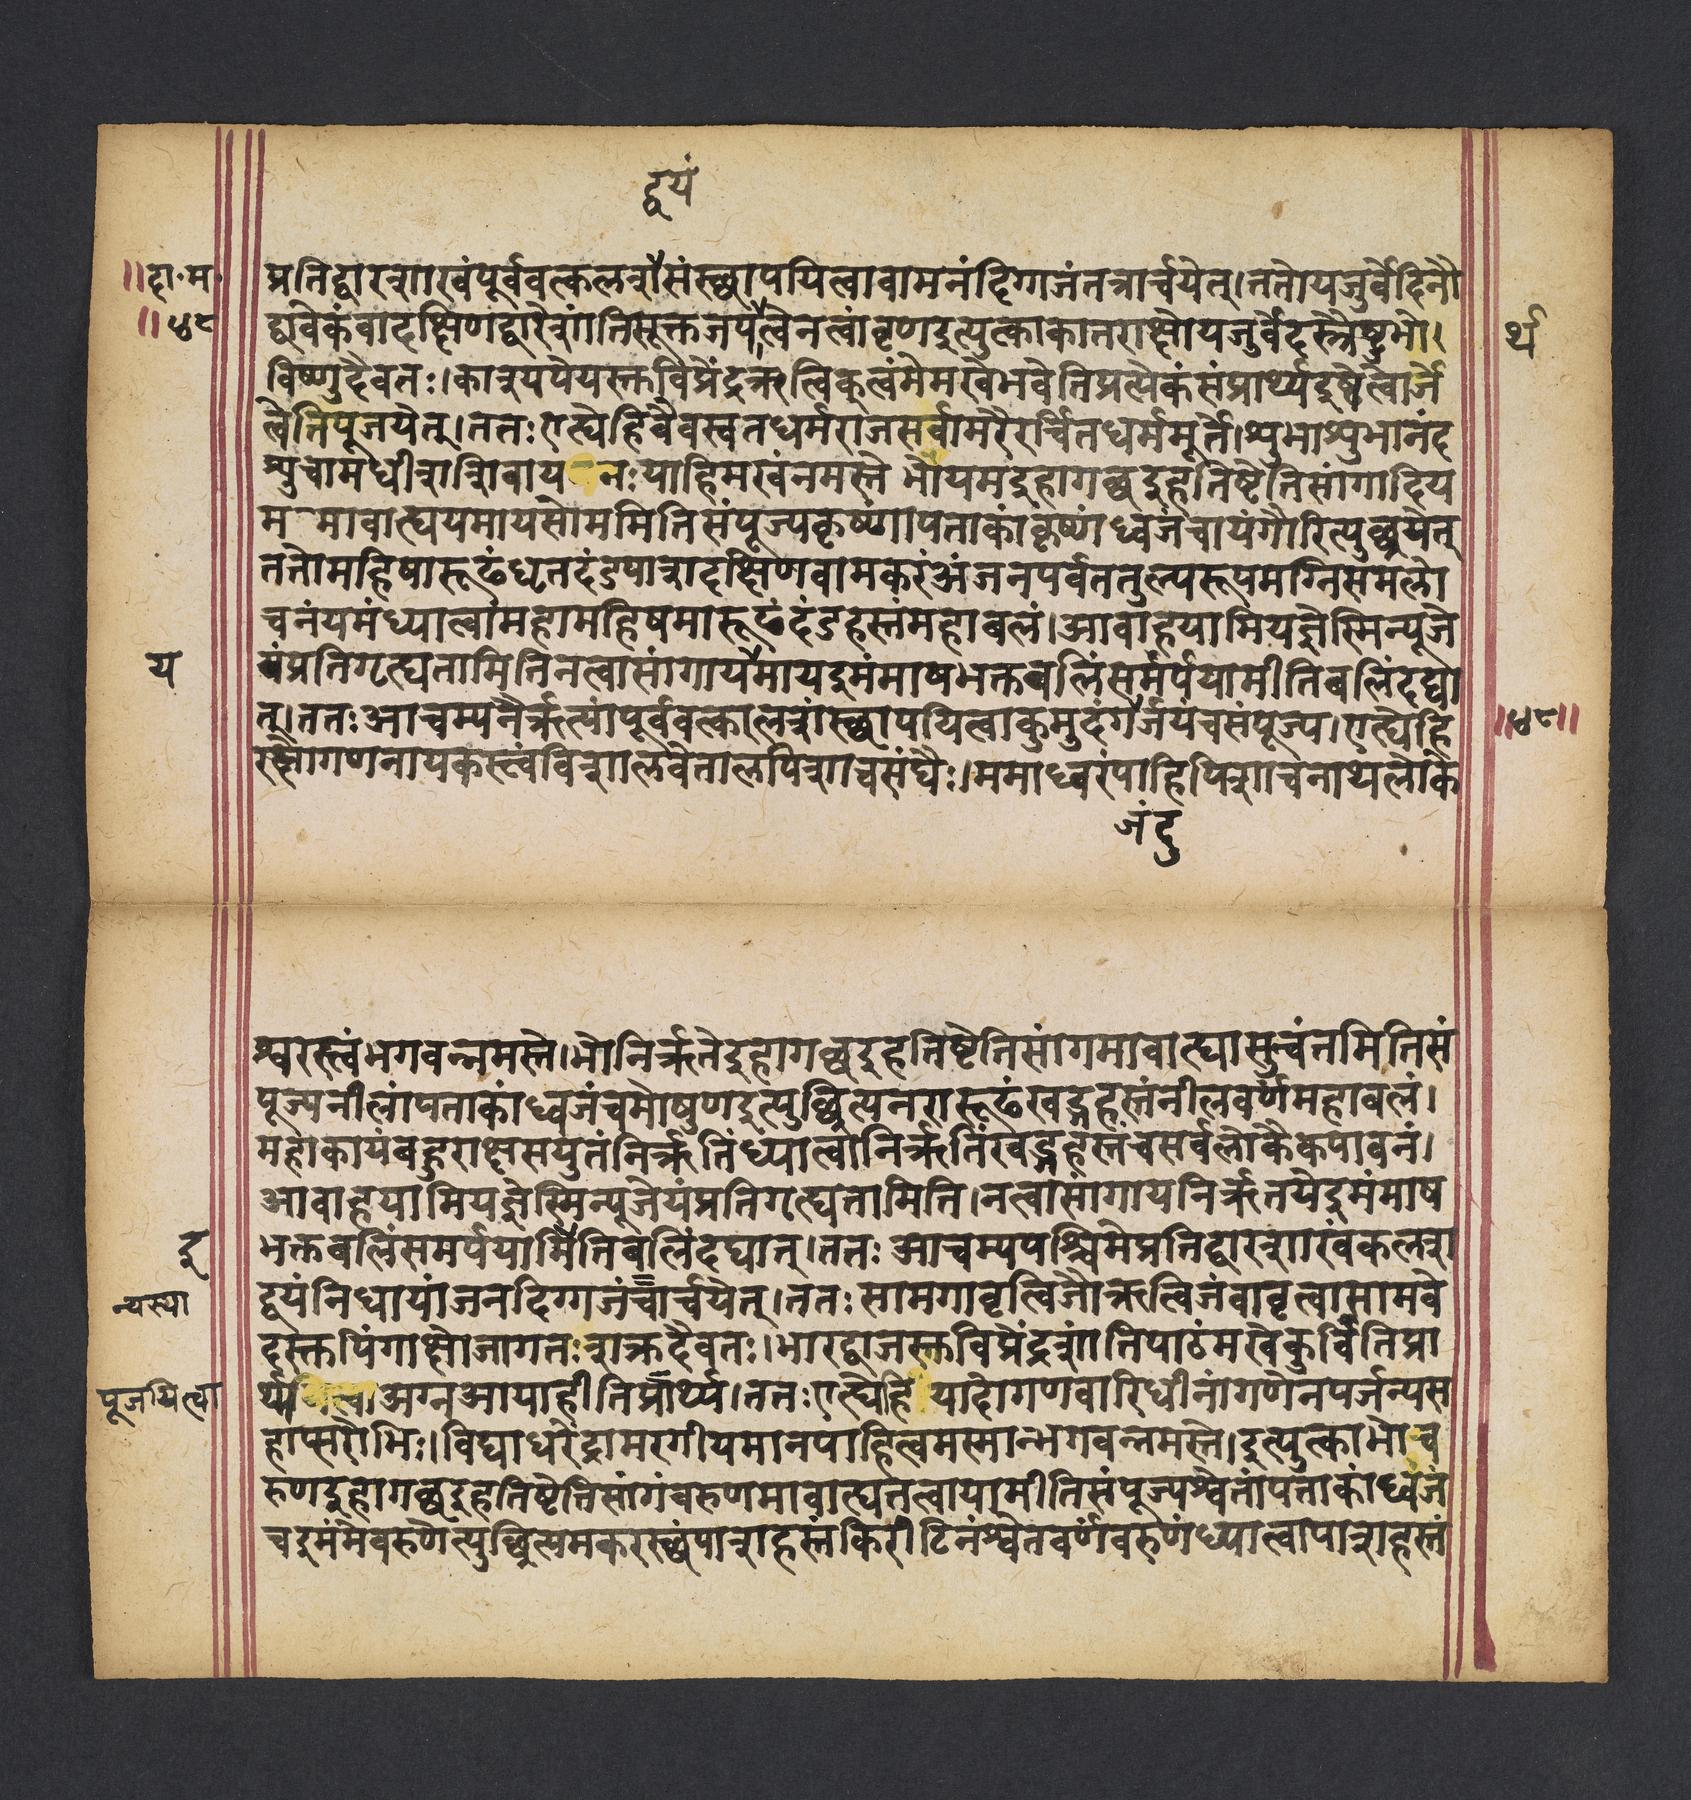 द्वयं
॥दा॰म॰ प्रतिद्वारशाखंपूर्ववत्कलशौसंस्थापयित्वावामनंदिग्गजंतत्रार्चयेत्।ततोयजुर्वेदिनौ
॥५८ द्वावेकंवादक्षिणद्वारेशांतिसूक्तजपत्वेनत्वांवृणइत्युत्काकातराक्षोयजुर्वेदस्त्रैष्टुभो। र्थ
विष्णुदैवतः।काश्यपेयस्तुविप्रेंद्रऋत्विक्त्वंमेमखेभवेतिप्रत्येकंसंप्रार्थ्यइषेत्वोर्जे
त्वेतिपूजयेत्।ततःएह्येहिवैवस्वतधर्मराजसर्वामरैरर्चितधर्ममूर्ते।शुभाशुभानंद
शुचामधीशशिवाय नःपाहिमखंनमस्ते भोयमइहागच्छइहतिष्टेतिसांगादिय
म मावाह्ययमायसोममितिसंपूज्यकृष्णांपताकांकृष्णंध्वजंचायंगौरित्युच्छ्रयेत्
ततोमहिषारूढंधृतदंडपाशदक्षिणवामकरंअंजनपर्वततुल्यरूपमग्निसमलो
चनंयमंध्यात्वामहामहिषमारूढंदंडहस्तंमहाबलं।आवाहयामियज्ञेस्मिन्पूजे
य यंप्रतिगृह्यतामितिनत्वासांगाययमायइमंमाषभक्तबलिंसमर्पयामीतिबलिंदद्या
त्।ततःआचम्यनैर्ऋत्यांपूर्ववत्कालशंस्थापयित्वाकुमुदंगर्जयंचसंपूज्य।एह्येहि ॥५८॥
रक्षोगणनायकस्त्वंविशालवेतालपिशाचसंघैः।ममाध्वरंपाहिपिशाचनाथलोके
जंदु
श्वरस्त्वंभगवन्नमस्ते।भोनिर्ऋतेइहागच्छइहतिष्टेतिसांगमावाह्यासुन्वंतमितिसं
पूज्यनीलांपताकांध्वजंचमोषुणइत्युच्छ्रित्यनरारूढंखड्गहस्तंनीलवर्णमहाबलं।
महाकायंबहुराक्षसयुतंनिर्ऋतिंध्यात्वानिर्ऋतिंखड्गहस्तंचसर्वलोकैकपावनं।
आवाहयामियज्ञेस्मिन्पूजेयंप्रतिगृह्यतामिति।नत्वासांगायनिर्ऋतयेइमंमाष
इ भक्तबलिंसमर्पयामितिबलिंदद्यात्।ततःआचम्यपश्चिमेप्रतिद्वारशाखंकलश
न्यस्या द्वयंनिधायांजनदिग्गजंचार्चयेत्।ततःसामगावृत्विजौऋत्विजंवावृत्वासामवे
दस्तुपिंगाक्षोजागतःशक्रदैवतः।भारद्वाजस्तुविप्रेंद्रशांतिपाठंमखेकुर्वितिप्रा
पूजयित्वा र्थ्य अग्नआयाहीतिप्रार्थ्य।ततःएह्येहि यादोगणवारिधीनांगणेनपर्जन्यस
हाप्सरोभिः।विद्याधरेंद्रामरगीयमानपाहित्वमस्मान्भगवन्नमस्ते।इत्युत्काभोव
रुणइहागच्छइहतिष्टेतिसांगंवरुणमावाह्यतत्वायामीतिसंपूज्यश्वेतांपताकांध्वजं
चइमंमेवरुणेत्युच्छ्रित्यमकरस्थंपाशहस्तंकिरीटिनंश्वेतवर्णंवरुणंध्यात्वापाशहस्तं